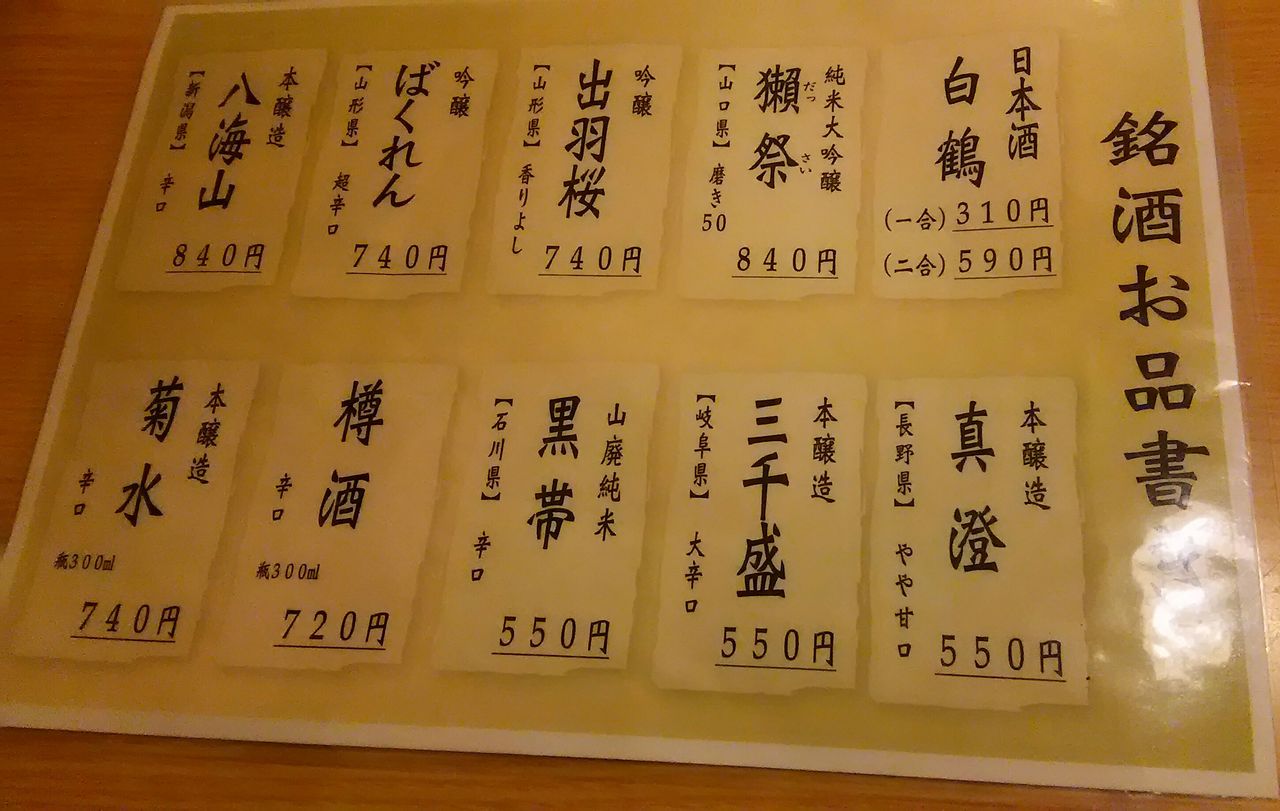 銘酒お品書
日本酒
白鶴
(一合) 310円
(二合) 590円
純米大吟醸
獺祭
だっ
さい
【山口県】 磨き50
840円
吟醸
出羽桜
【山形県】 香りよし
740円
吟醸
ばくれん
【山形県】 超辛口
740円
本醸造
八海山
【新潟県】 辛口
840円
本醸造
真澄
【長野県】 やや甘口
550円
本醸造
三千盛
【岐阜県】 大辛口
550円
山廃純米
黒帯
【石川県】 辛口
550円
樽酒
辛口
瓶300ml
720円
本醸造
菊水
辛口
瓶300ml
740円